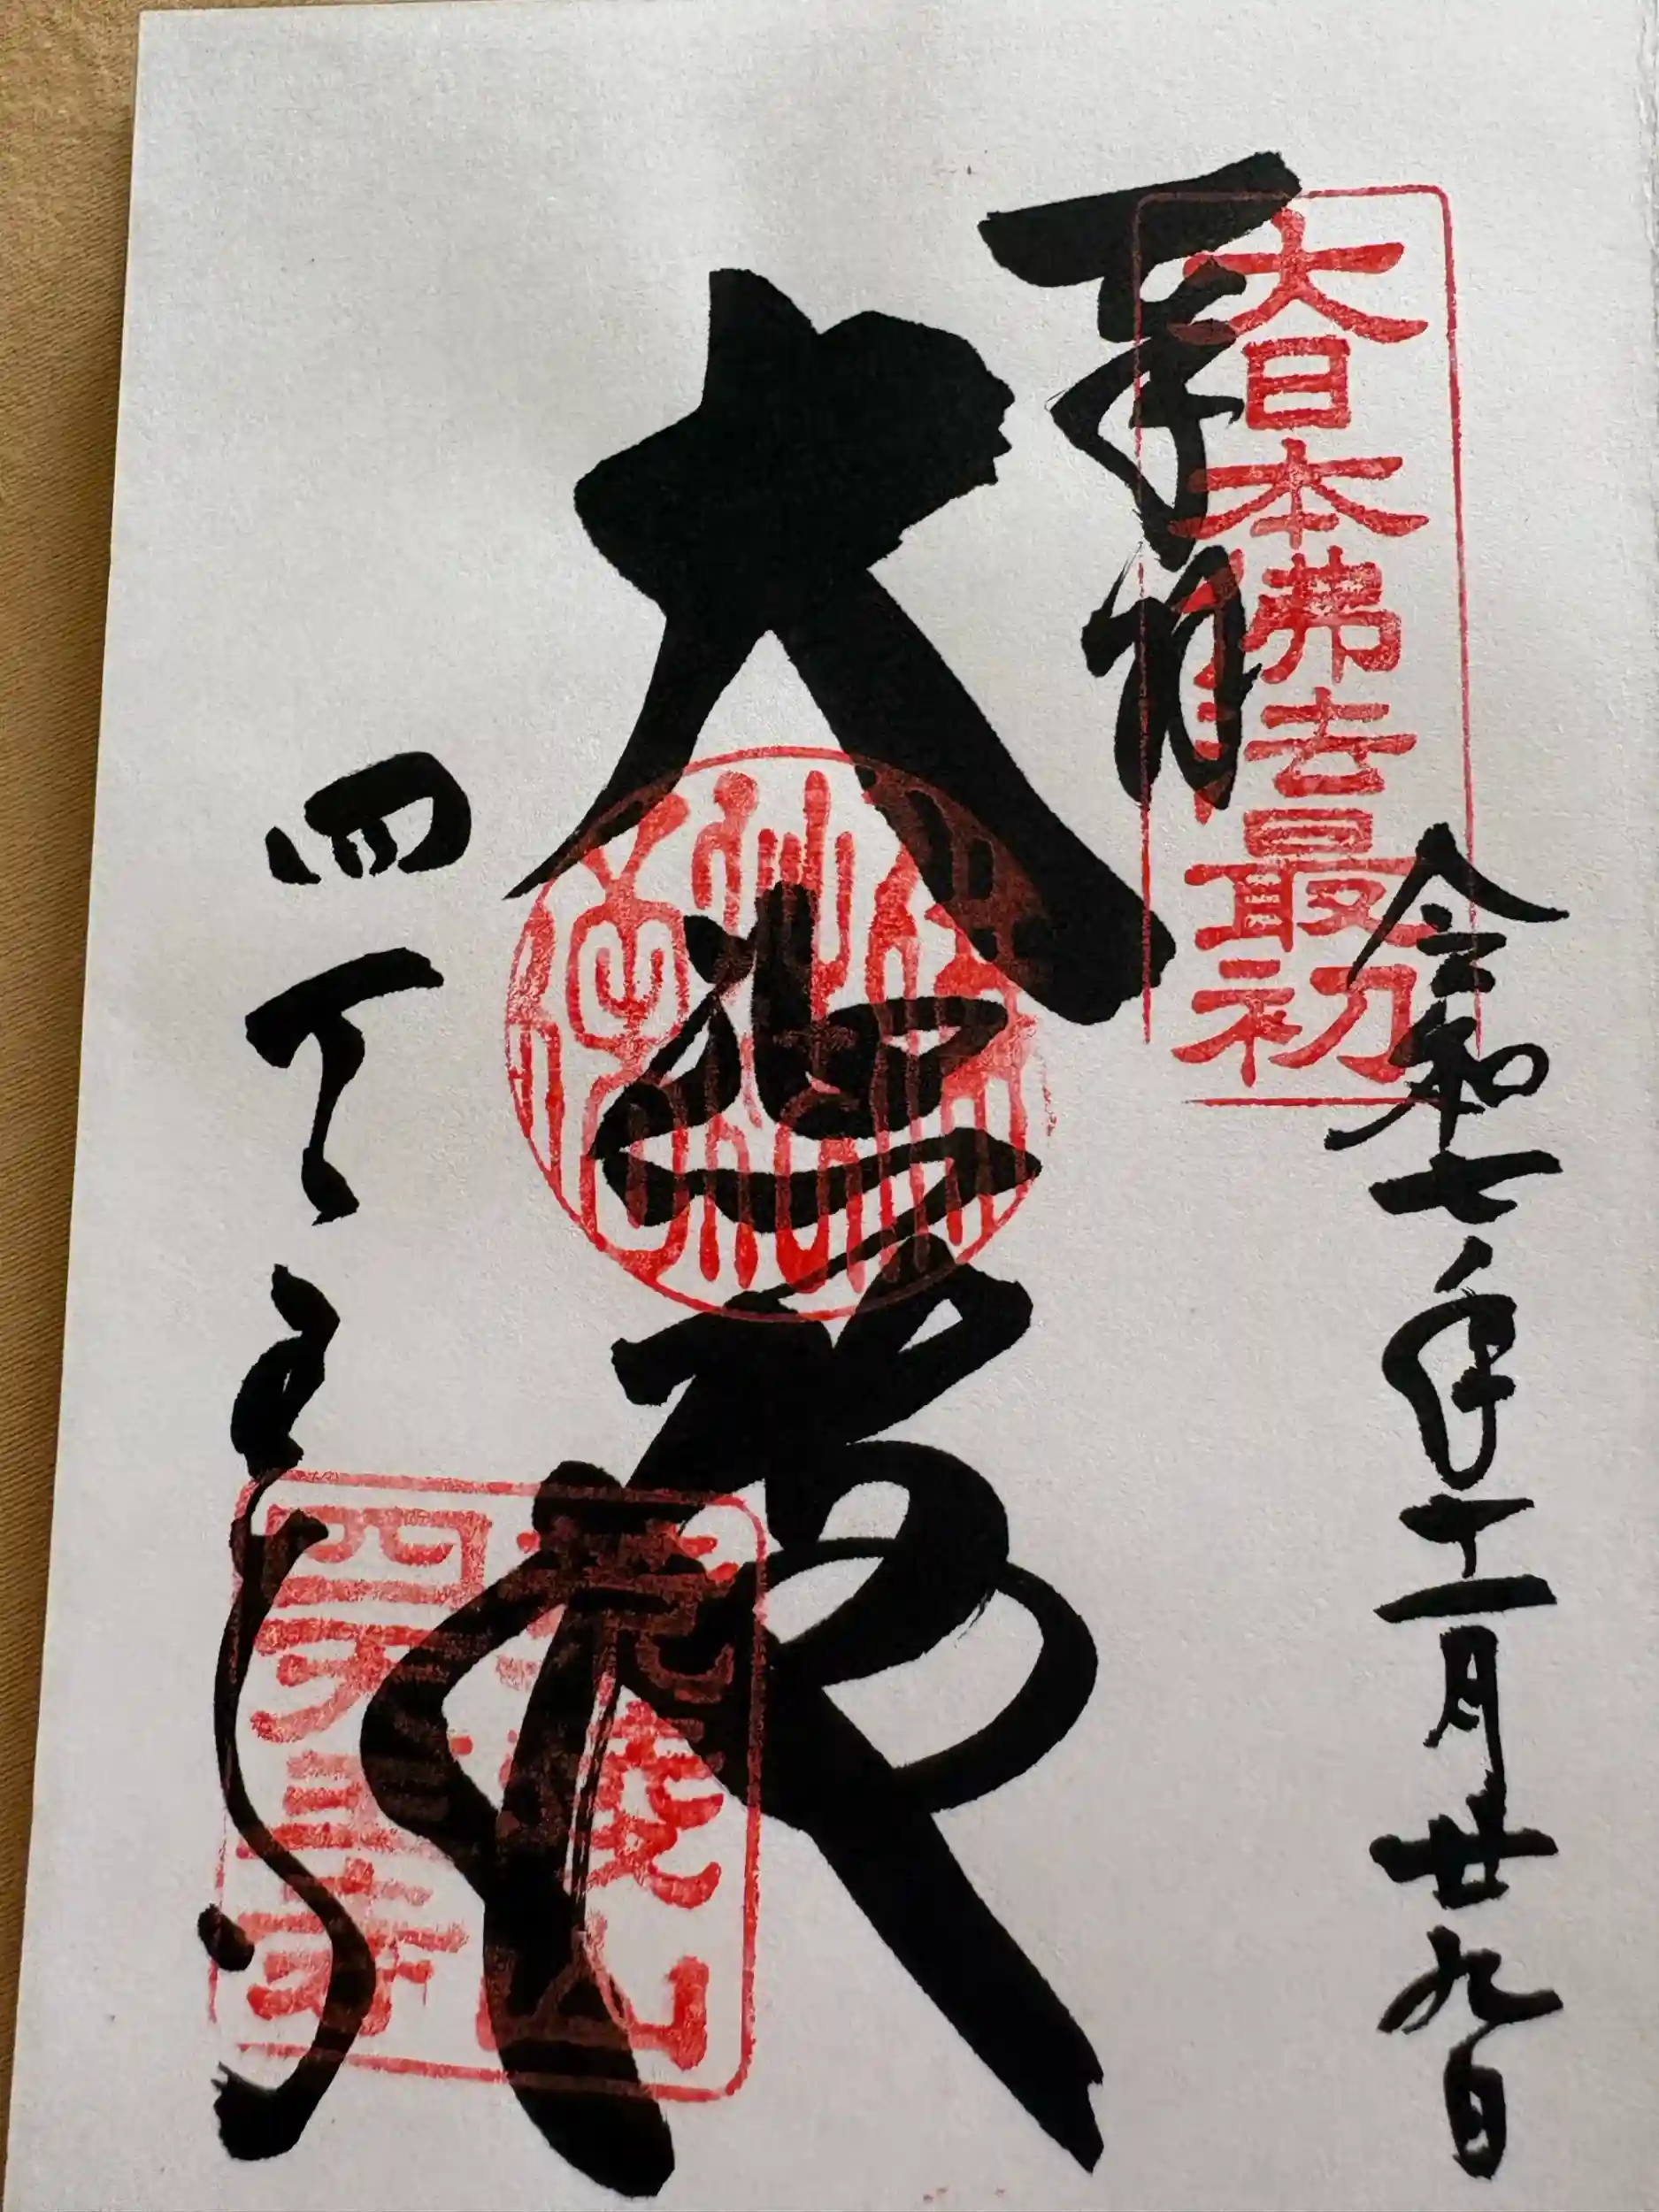 大日本佛法最初
奉拝
令和七年十一月廿九日
大悲殿
四天王寺
荒陵山
四天王寺